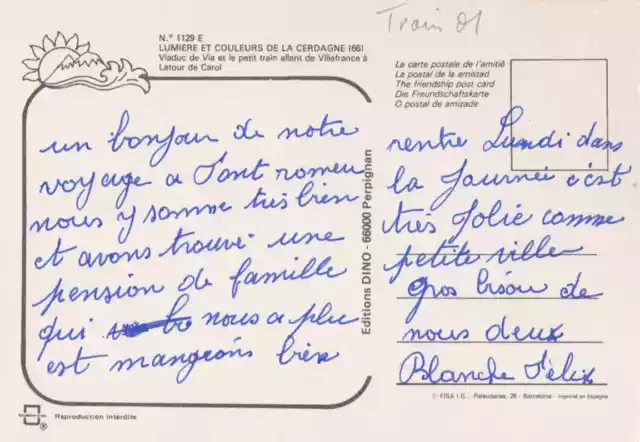 Train 01
N.º 1129 E
LUMIERE ET COULEURS DE LA CERDAGNE (66)
Viaduc de Via et le petit train allant de Villefranche à
Latour de Carol
La carte postale de l'amitié
La postal de la amistad
The friendship post card
Die Freundschaftskarte
O postal de amizade
un bonjour de notre
voyage a Font romeu
nous y somme très bien
et avons trouvé une
pension de famille
qui nous a plu
est mangeons bien
Editions DINO - 66000 Perpignan
rentre Lundi dans
la Journée c'est
très Jolie comme
petite ville
gros bisou de
nous deux
Blanche Félix
© FISA I.G. - Palaudarias, 26 - Barcelona - Imprimé en Espagne
Reproduction interdite